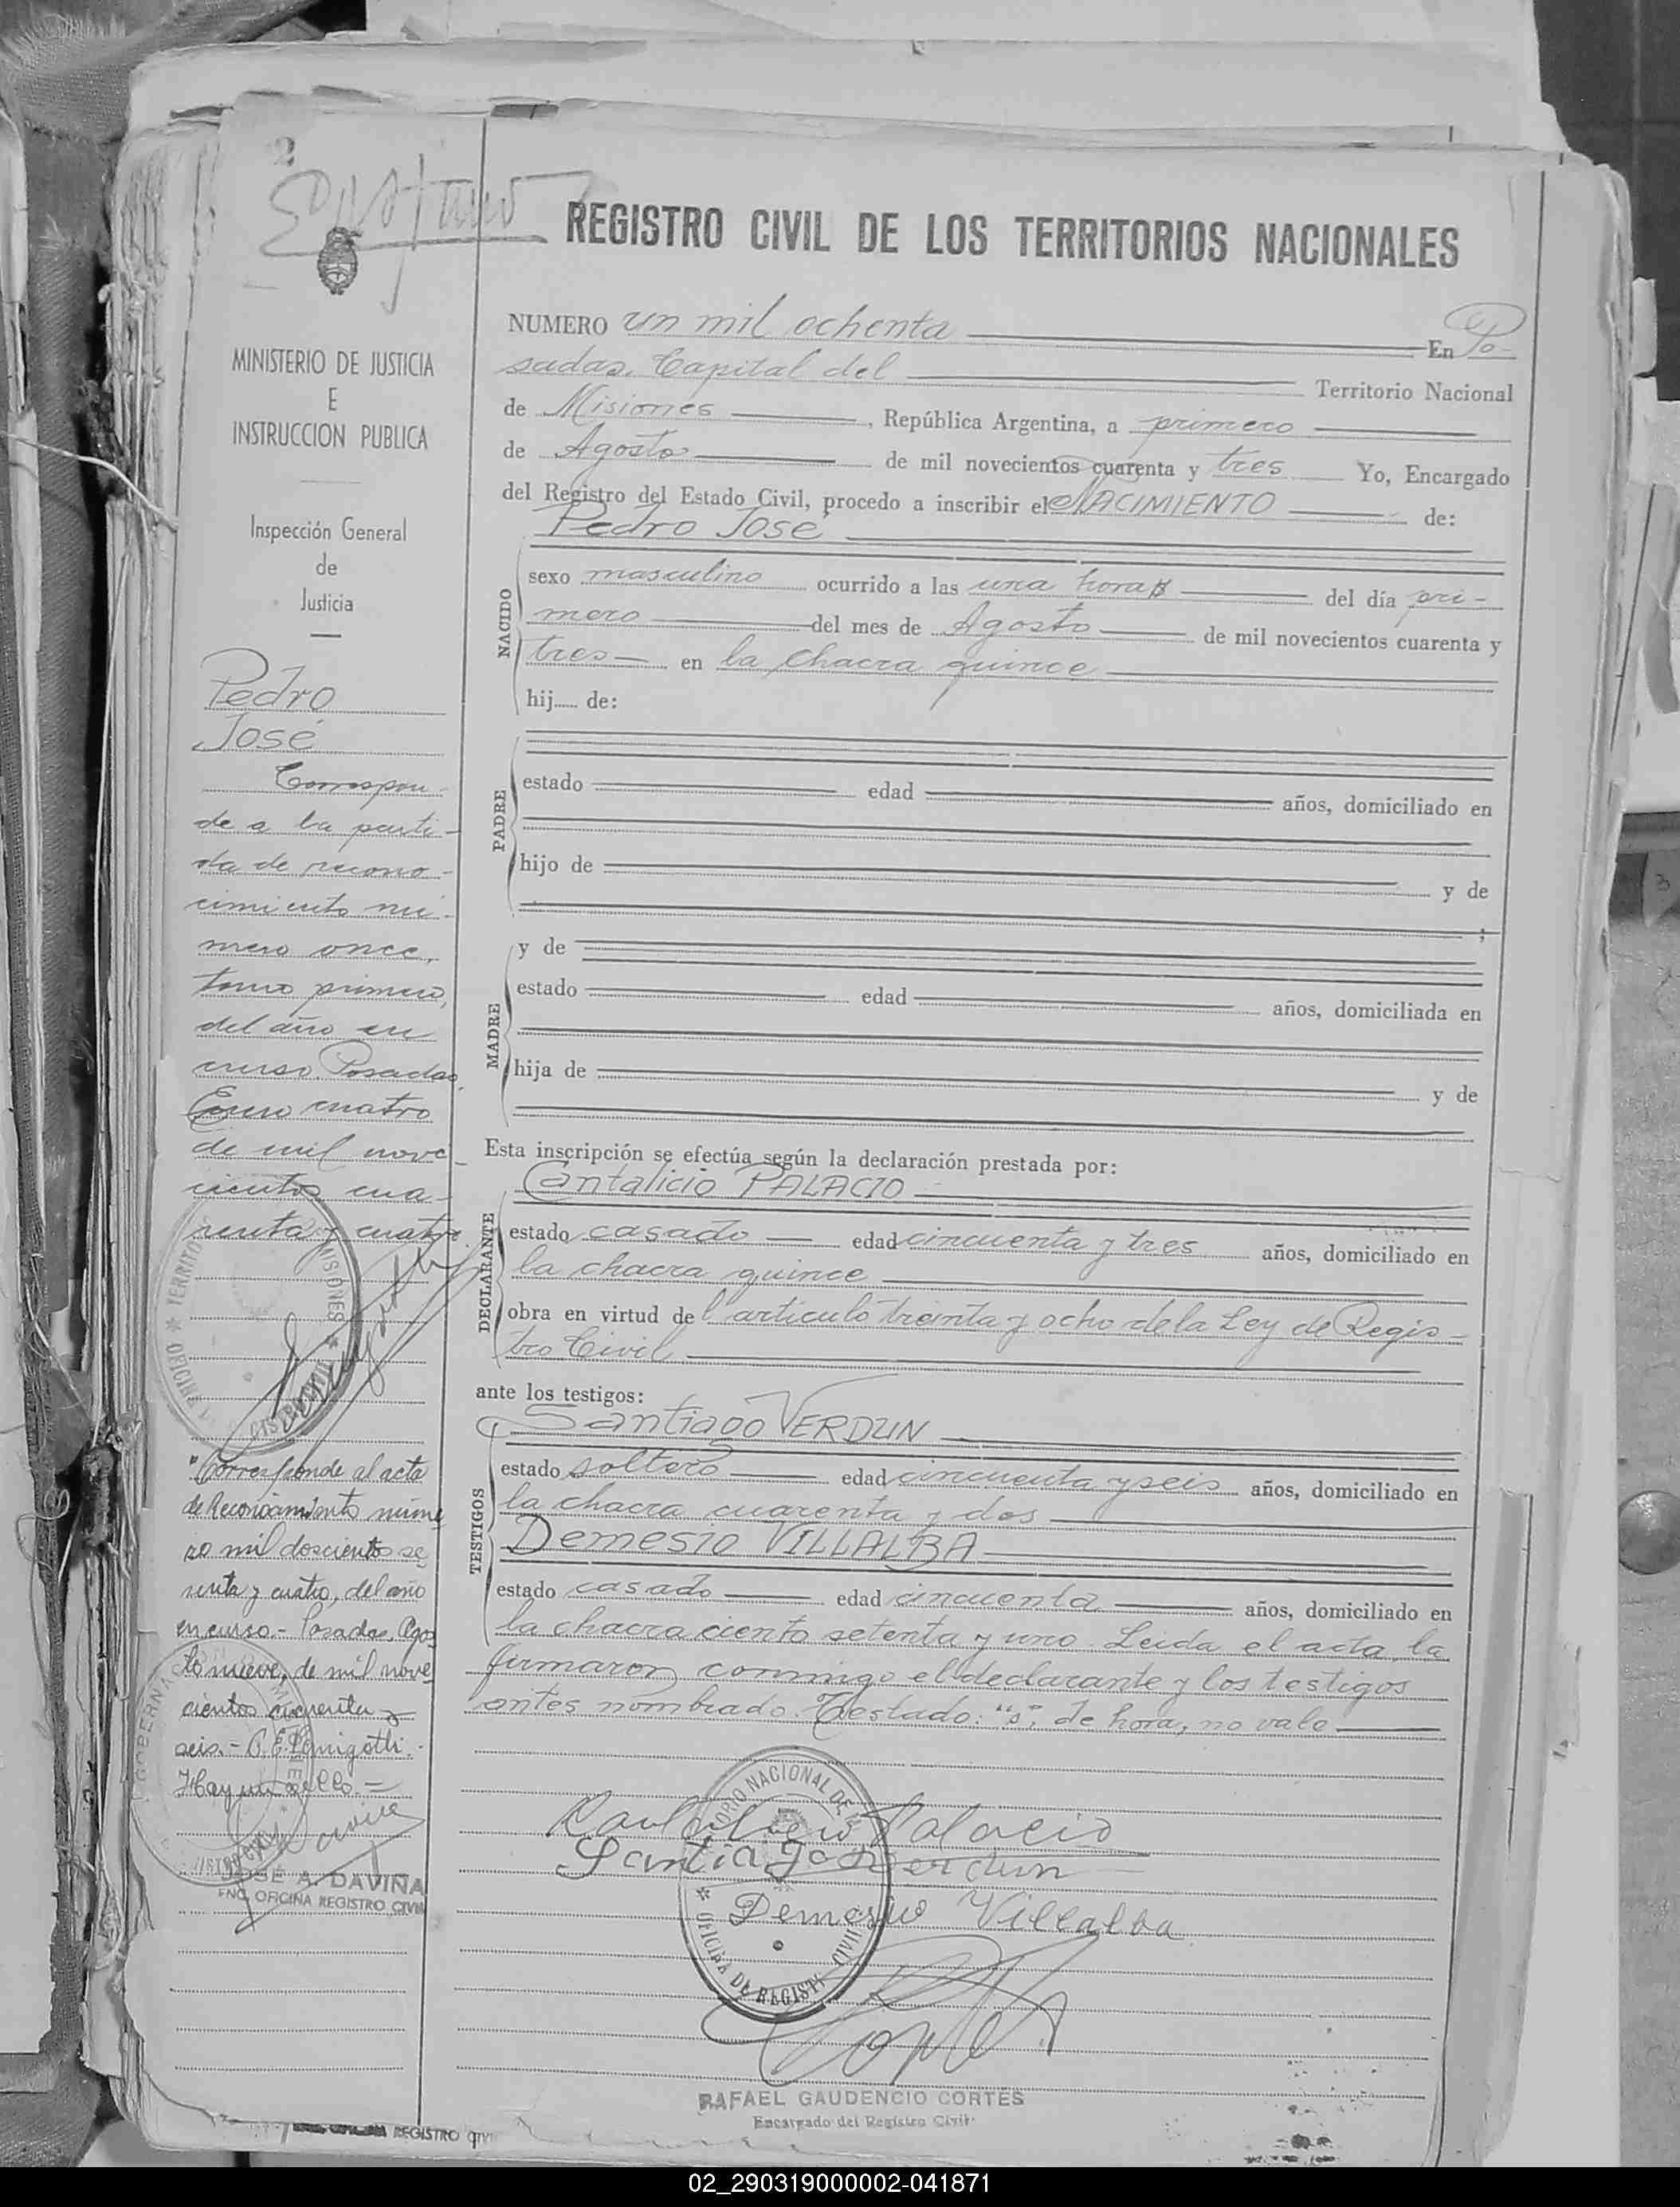 2
REGISTRO CIVIL DE LOS TERRITORIOS NACIONALES
MINISTERIO DE JUSTICIA
E
INSTRUCCION PUBLICA
Inspección General
de
Justicia
Pedro
José
Correspon-
de a la parti-
da de recono-
cimiento nú-
mero once,
tomo primero,
del año en
curso. Posadas,
Enero cuatro
de mil nove-
cientos cua-
renta y cuatro.
"Corresponde al acta
de Reconocimiento núme
ro mil doscientos se
senta y cuatro, del año
en curso.- Posadas, Agos
to nueve, de mil nove
cientos cuarenta y
seis.-
Hay un sello.-
JOSE A. DAVIÑA
ENC. OFICINA REGISTRO CIVIL
NUMERO un mil ochenta En Po-
sadas, Capital del Territorio Nacional
de Misiones, República Argentina, a primero
de Agosto de mil novecientos cuarenta y tres Yo, Encargado
del Registro del Estado Civil, procedo a inscribir el NACIMIENTO de:
Pedro José
NACIDO
sexo masculino ocurrido a las una horas del día pri-
mero del mes de Agosto de mil novecientos cuarenta y
tres en la chacra quince
hij..... de:
PADRE
estado edad años, domiciliado en
hijo de y de
;
MADRE
y de
estado edad años, domiciliada en
hija de y de
Esta inscripción se efectúa según la declaración prestada por:
Cantalicio PALACIO
DECLARANTE
estado casado edad cincuenta y tres años, domiciliado en
la chacra quince
obra en virtud del artículo treinta y ocho de la Ley de Regis-
tro Civil
ante los testigos:
Santiago VERDUN
TESTIGOS
estado soltero edad cincuenta y seis años, domiciliado en
la chacra cuarenta y dos
Demesio VILLALBA
estado casado edad cincuenta años, domiciliado en
la chacra ciento setenta y uno. Leida el acta, la
firmaron conmigo el declarante y los testigos
antes nombrado. Testado: "s", de hora, no vale
Palacio
Santiago Verdun
Demesio Villalba
OFICINA DE REGISTRO CIVIL
Cortes
RAFAEL GAUDENCIO CORTES
Encargado del Registro Civil
REGISTRO CIVIL
02_290319000002-041871